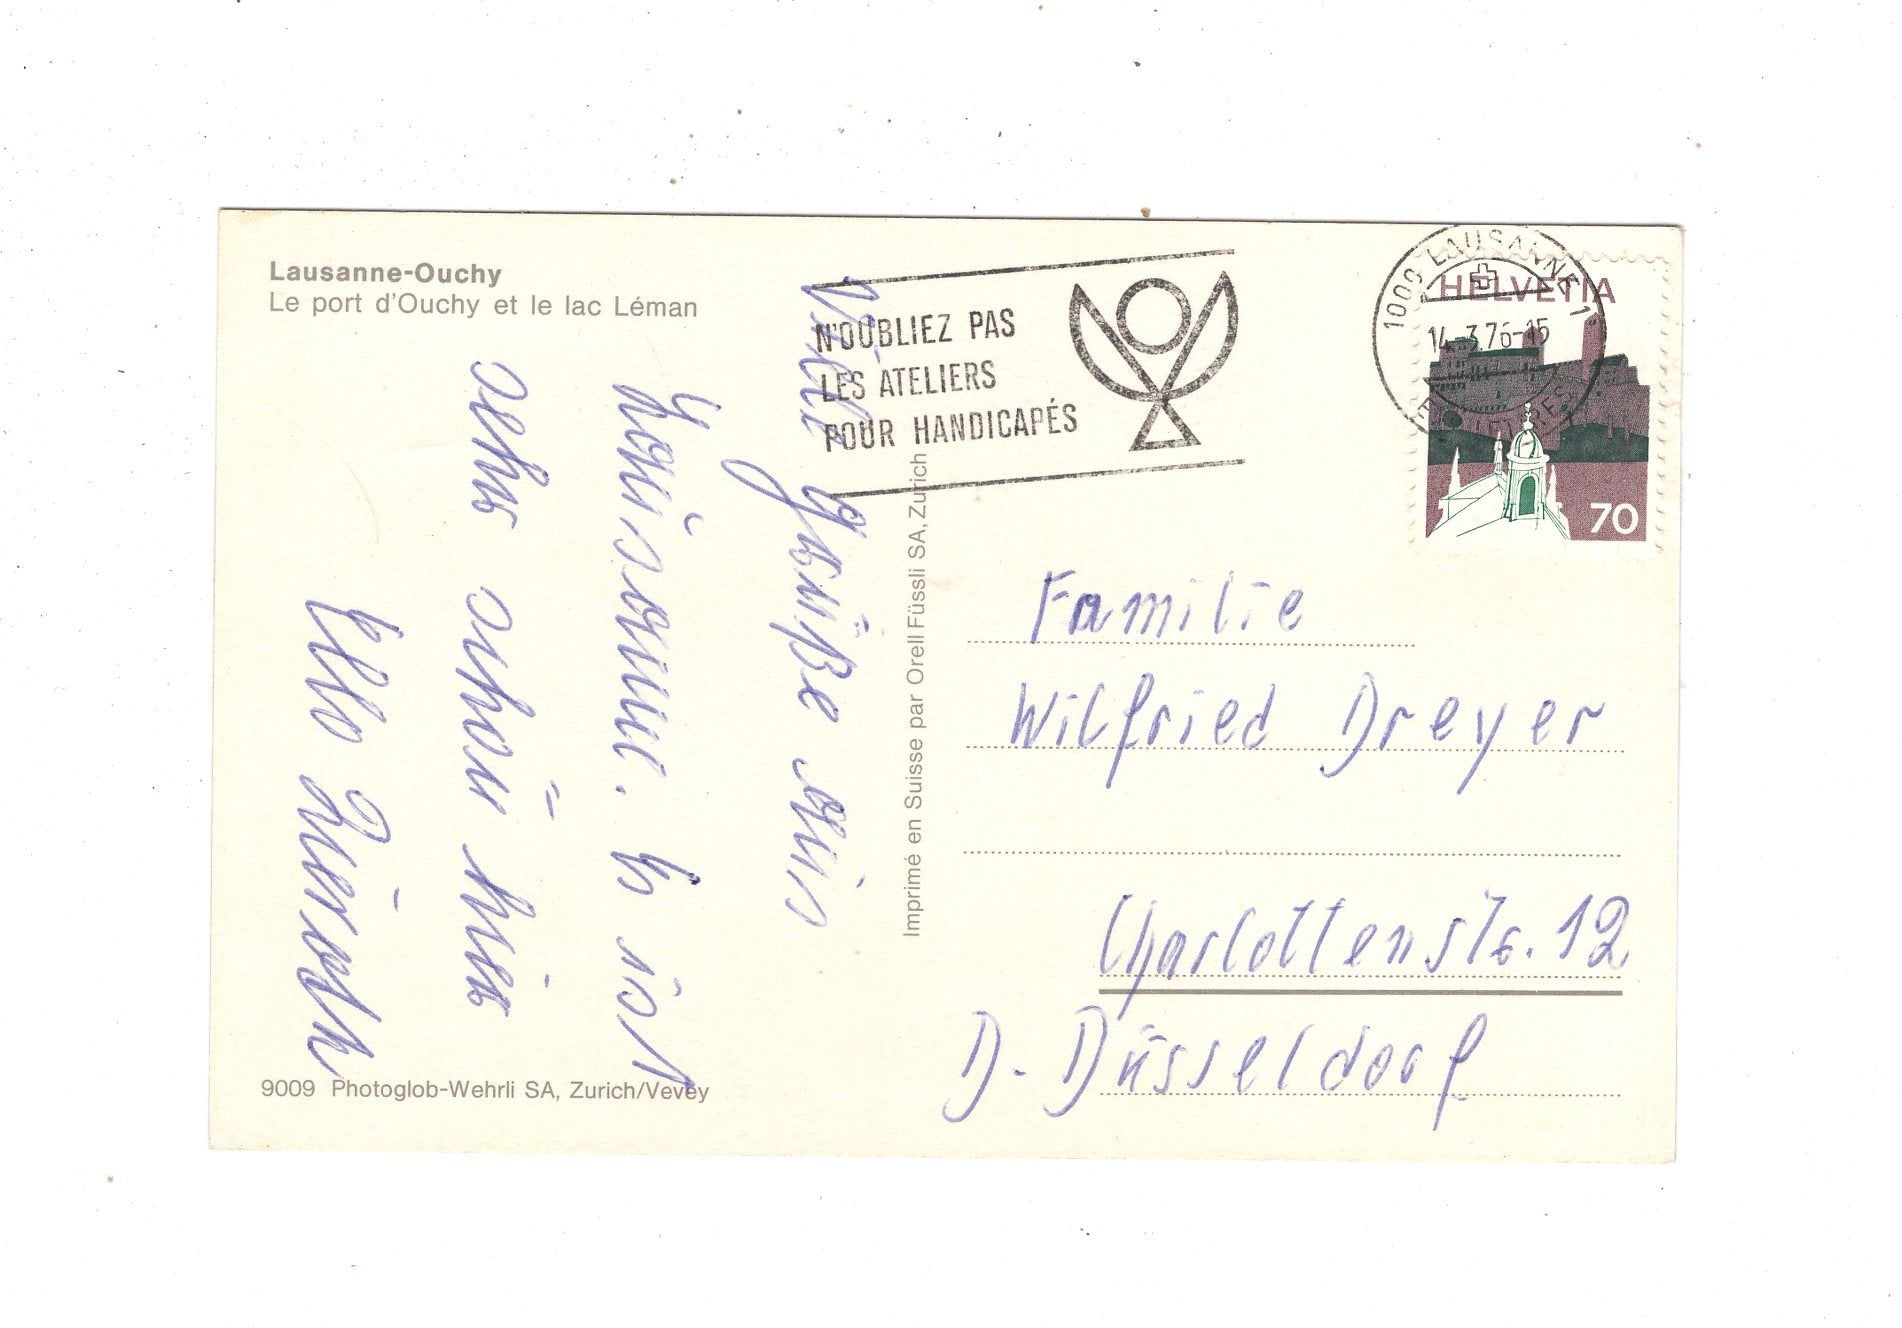 Lausanne-Ouchy
Le port d'Ouchy et le lac Léman
Viele Grüße aus
Lausanne. Es ist
sehr schön hier
9009 Photoglob-Wehrli SA, Zurich/Vevey
Imprimé en Suisse par Orell Füssli SA, Zurich
N'OUBLIEZ PAS
LES ATELIERS
POUR HANDICAPÉS
1000 LAUSANNE 1
14-3.76-15
HELVETIA
70
Familie
Wilfried Dreyer
Charlottenstr. 12
D. Düsseldorf